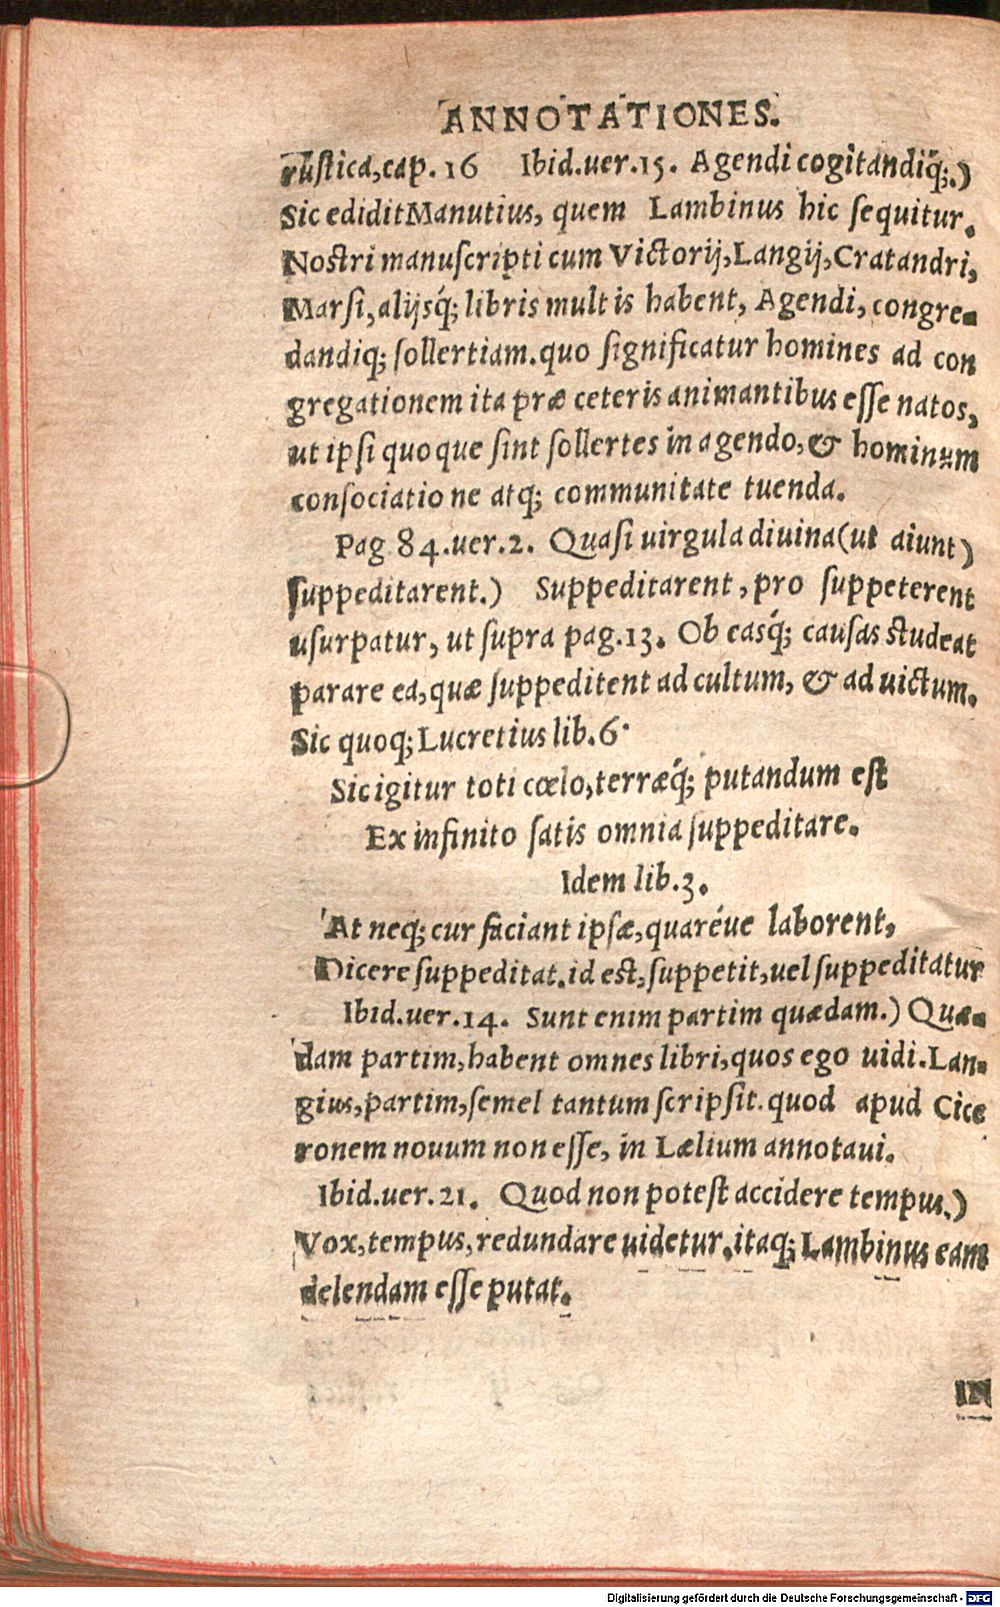 ANNOTATIONES.
rustica,cap. 16 Ibid.uer.15. Agendi cogitandiq́;.)
Sic edidit Manutius, quem Lambinus hic sequitur.
Nostri manuscripti cum Victorij, Langij, Cratandri,
Marsi, alijsq́; libris multis habent, Agendi, congre-
dandiq; sollertiam. quo significatur homines ad con
gregationem ita præ ceteris animantibus esse natos,
ut ipsi quoque sint sollertes in agendo, & hominum
consociatione atq; communitate tuenda.
Pag 84.uer.2. Quasi uirgula diuina (ut aiunt)
suppeditarent.) Suppeditarent, pro suppeterent
usurpatur, ut supra pag.13. Ob easq́; causas studeat
parare ea, quæ suppeditent ad cultum, & ad uictum.
Sic quoq; Lucretius lib.6.
Sic igitur toti cœlo, terræq́; putandum est
Ex infinito satis omnia suppeditare.
Idem lib.3.
At neq; cur faciant ipsæ, quaréue laborent,
Dicere suppeditat. id est, suppetit, uel suppeditatur
Ibid.uer.14. Sunt enim partim quædam.) Quæ-
dam partim, habent omnes libri, quos ego uidi. Lan-
gius, partim, semel tantum scripsit. quod apud Cice
ronem nouum non esse, in Lælium annotaui.
Ibid.uer.21. Quod non potest accidere tempus.)
Vox, tempus, redundare uidetur. itaq; Lambinus eam
delendam esse putat.
IN
Digitalisierung gefördert durch die Deutsche Forschungsgemeinschaft - DFG